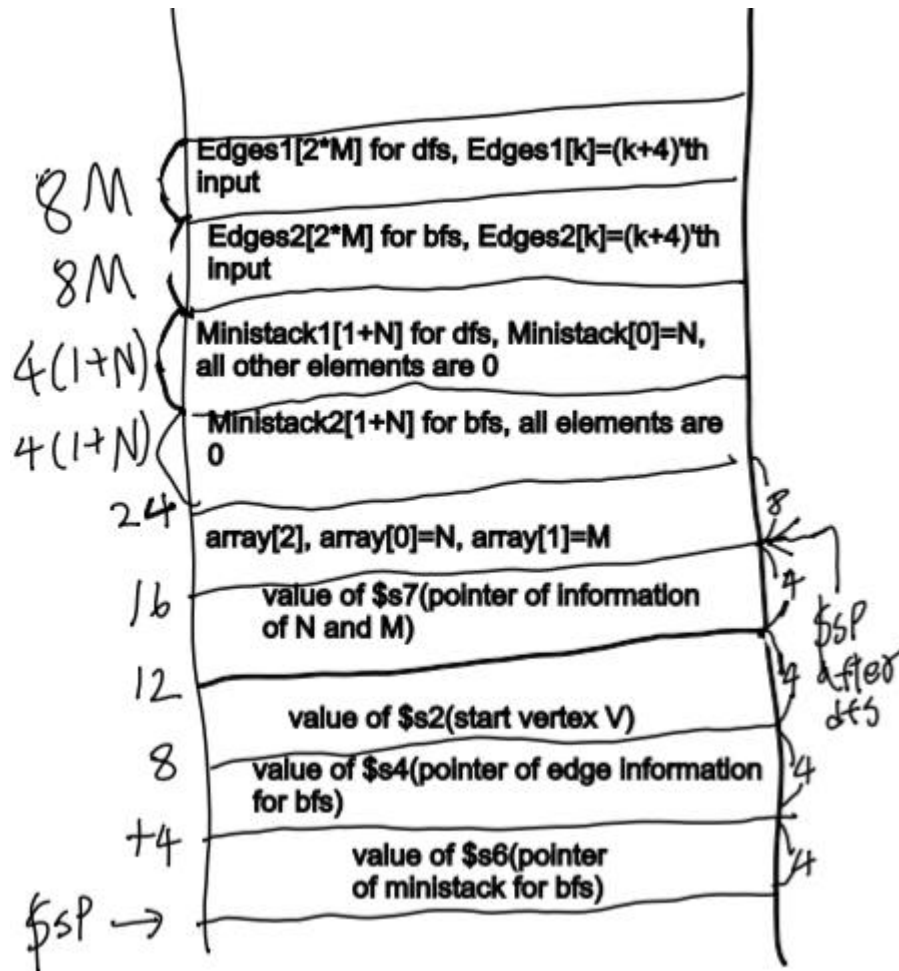 Edges1[2*M] for dfs, Edges1[k]=(k+4)'th
input
8M
Edges2[2*M] for bfs, Edges2[k]=(k+4)'th
input
8M
Ministack1[1+N] for dfs, Ministack[0]=N,
all other elements are 0
4(1+N)
Ministack2[1+N] for bfs, all elements are
0
4(1+N)
24
8
array[2], array[0]=N, array[1]=M
16
4
value of $s7(pointer of information
of N and M)
$sp
after
dfs
12
4
value of $s2(start vertex V)
8
value of $s4(pointer of edge information
for bfs)
4
+4
value of $s6(pointer
of ministack for bfs)
4
$sp →